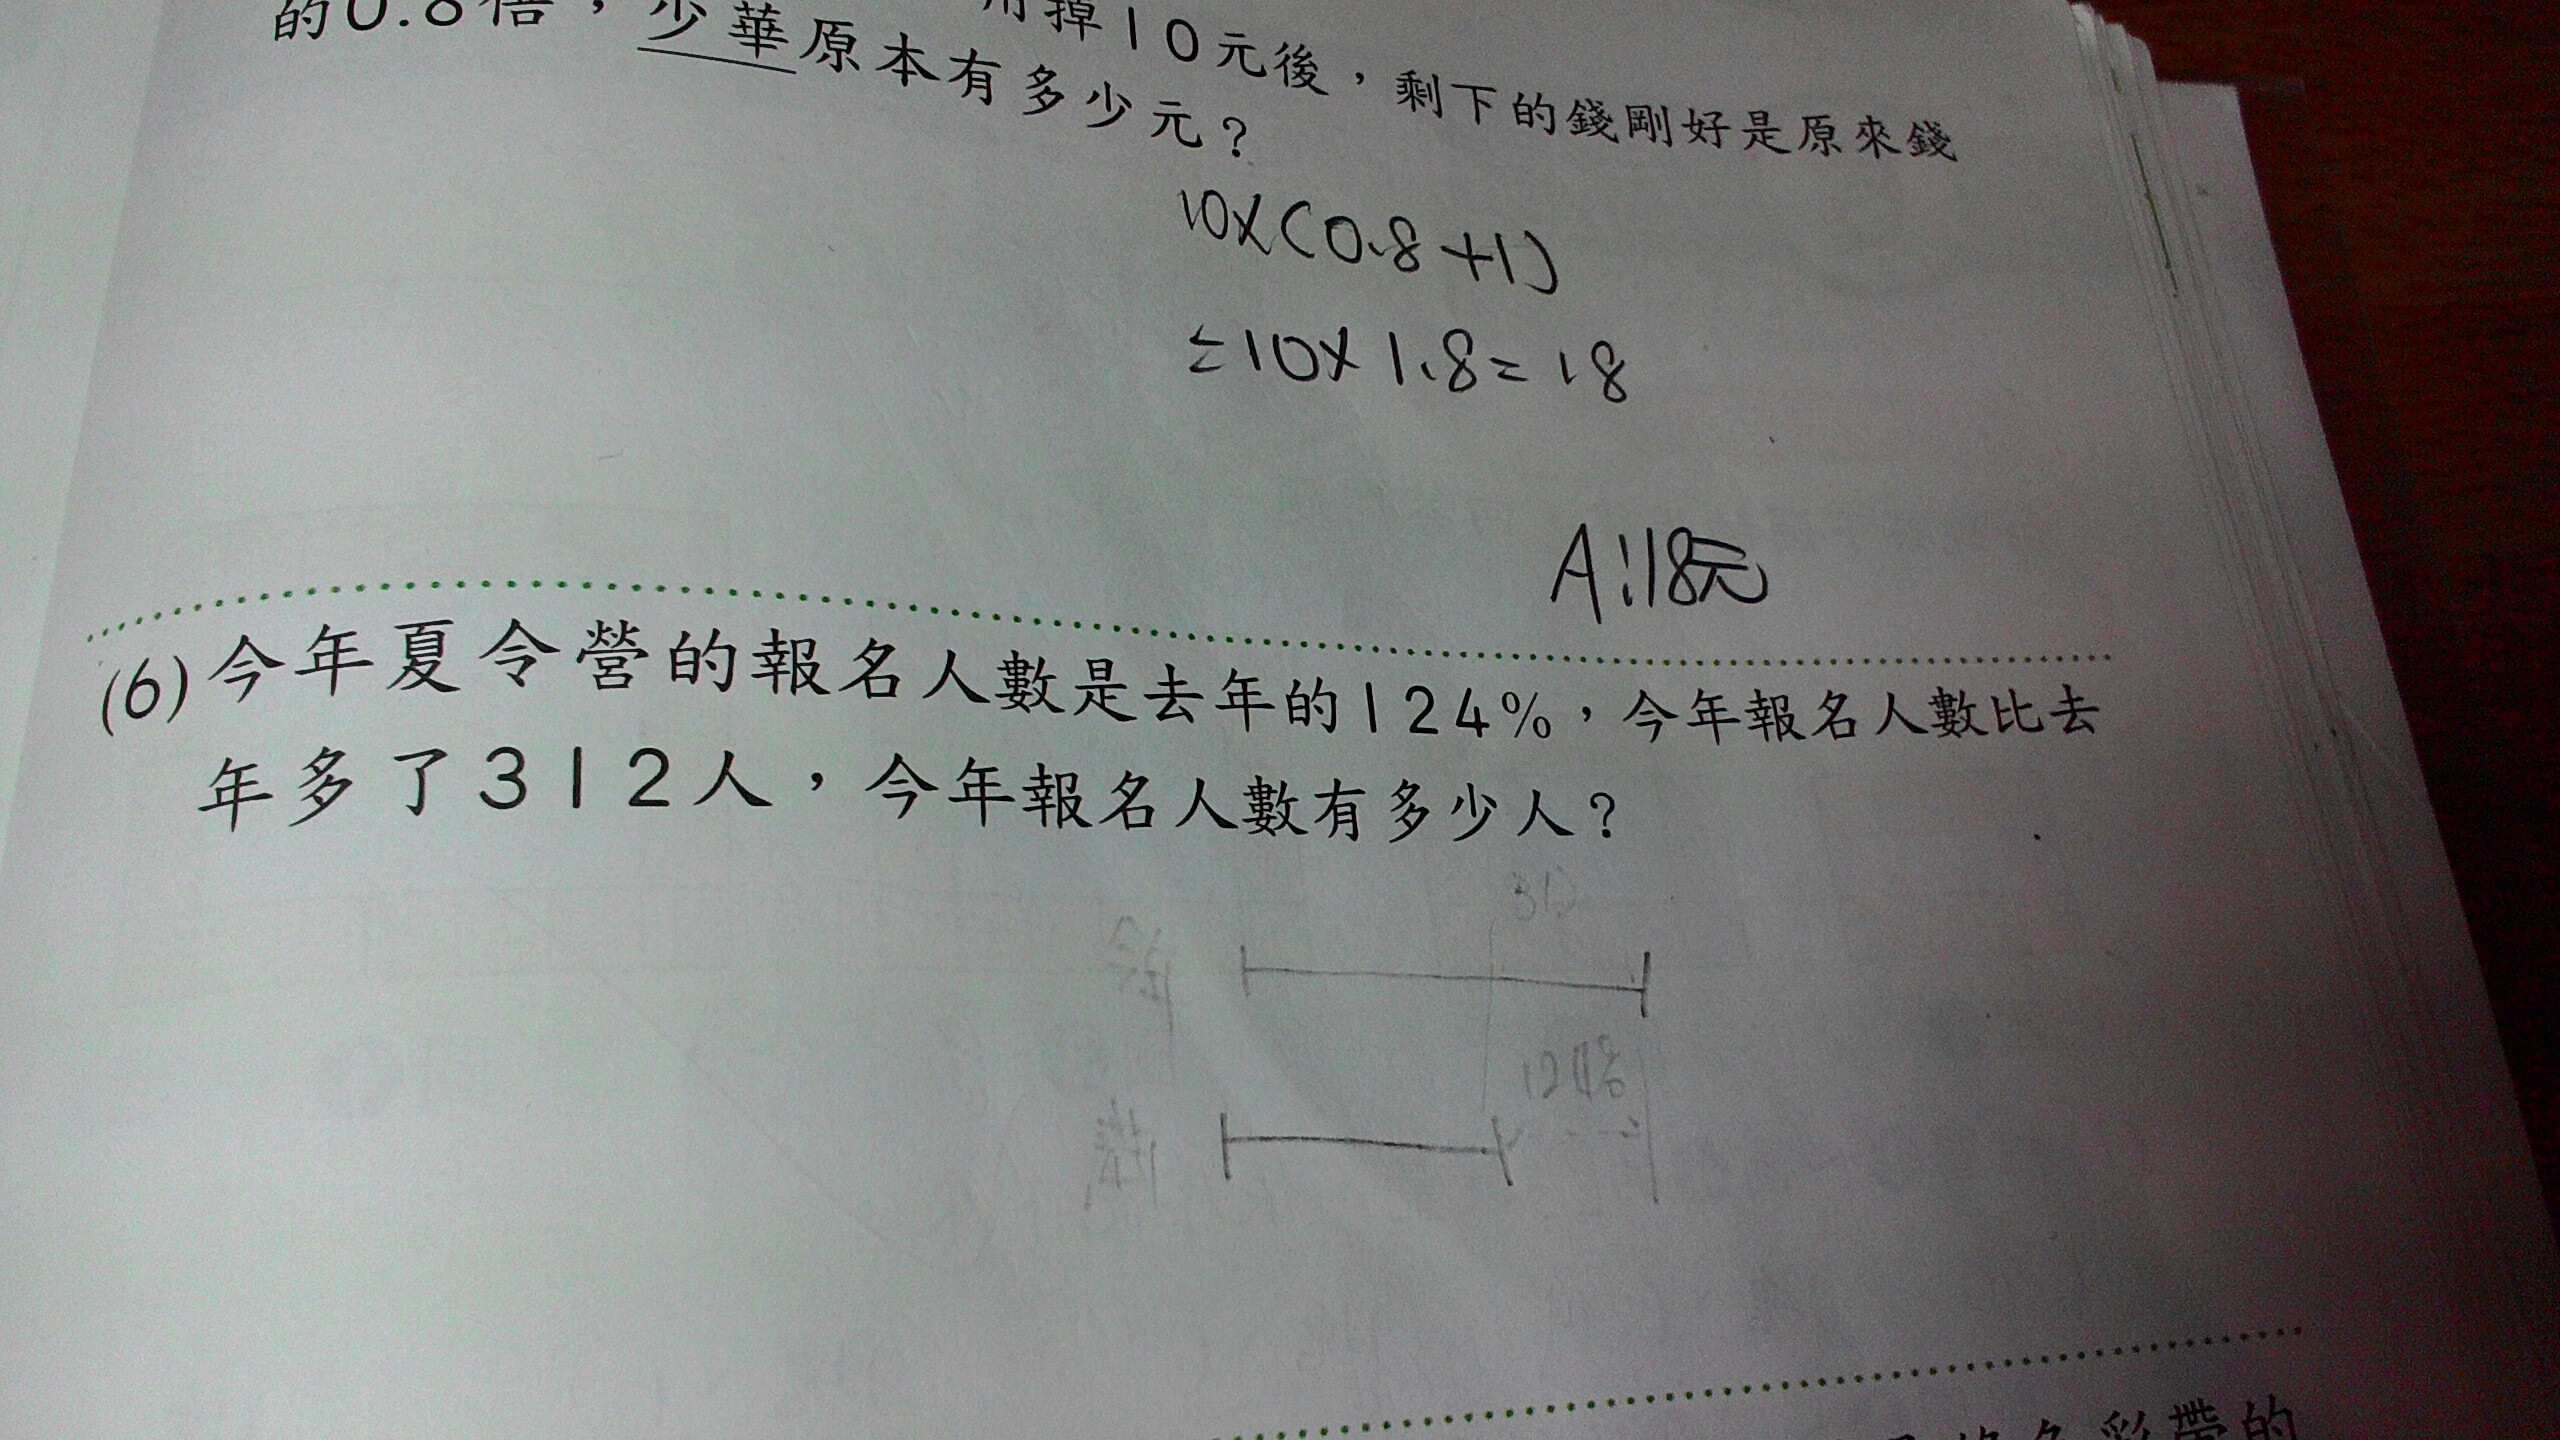 用掉10元後，剩下的錢剛好是原來錢
的0.8倍，少華原本有多少元？
10×(0.8+1)
=10×1.8=18
A:18元
(6)今年夏令營的報名人數是去年的124%，今年報名人數比去
年多了312人，今年報名人數有多少人？
312
今年
124%
去年
色彩帶的